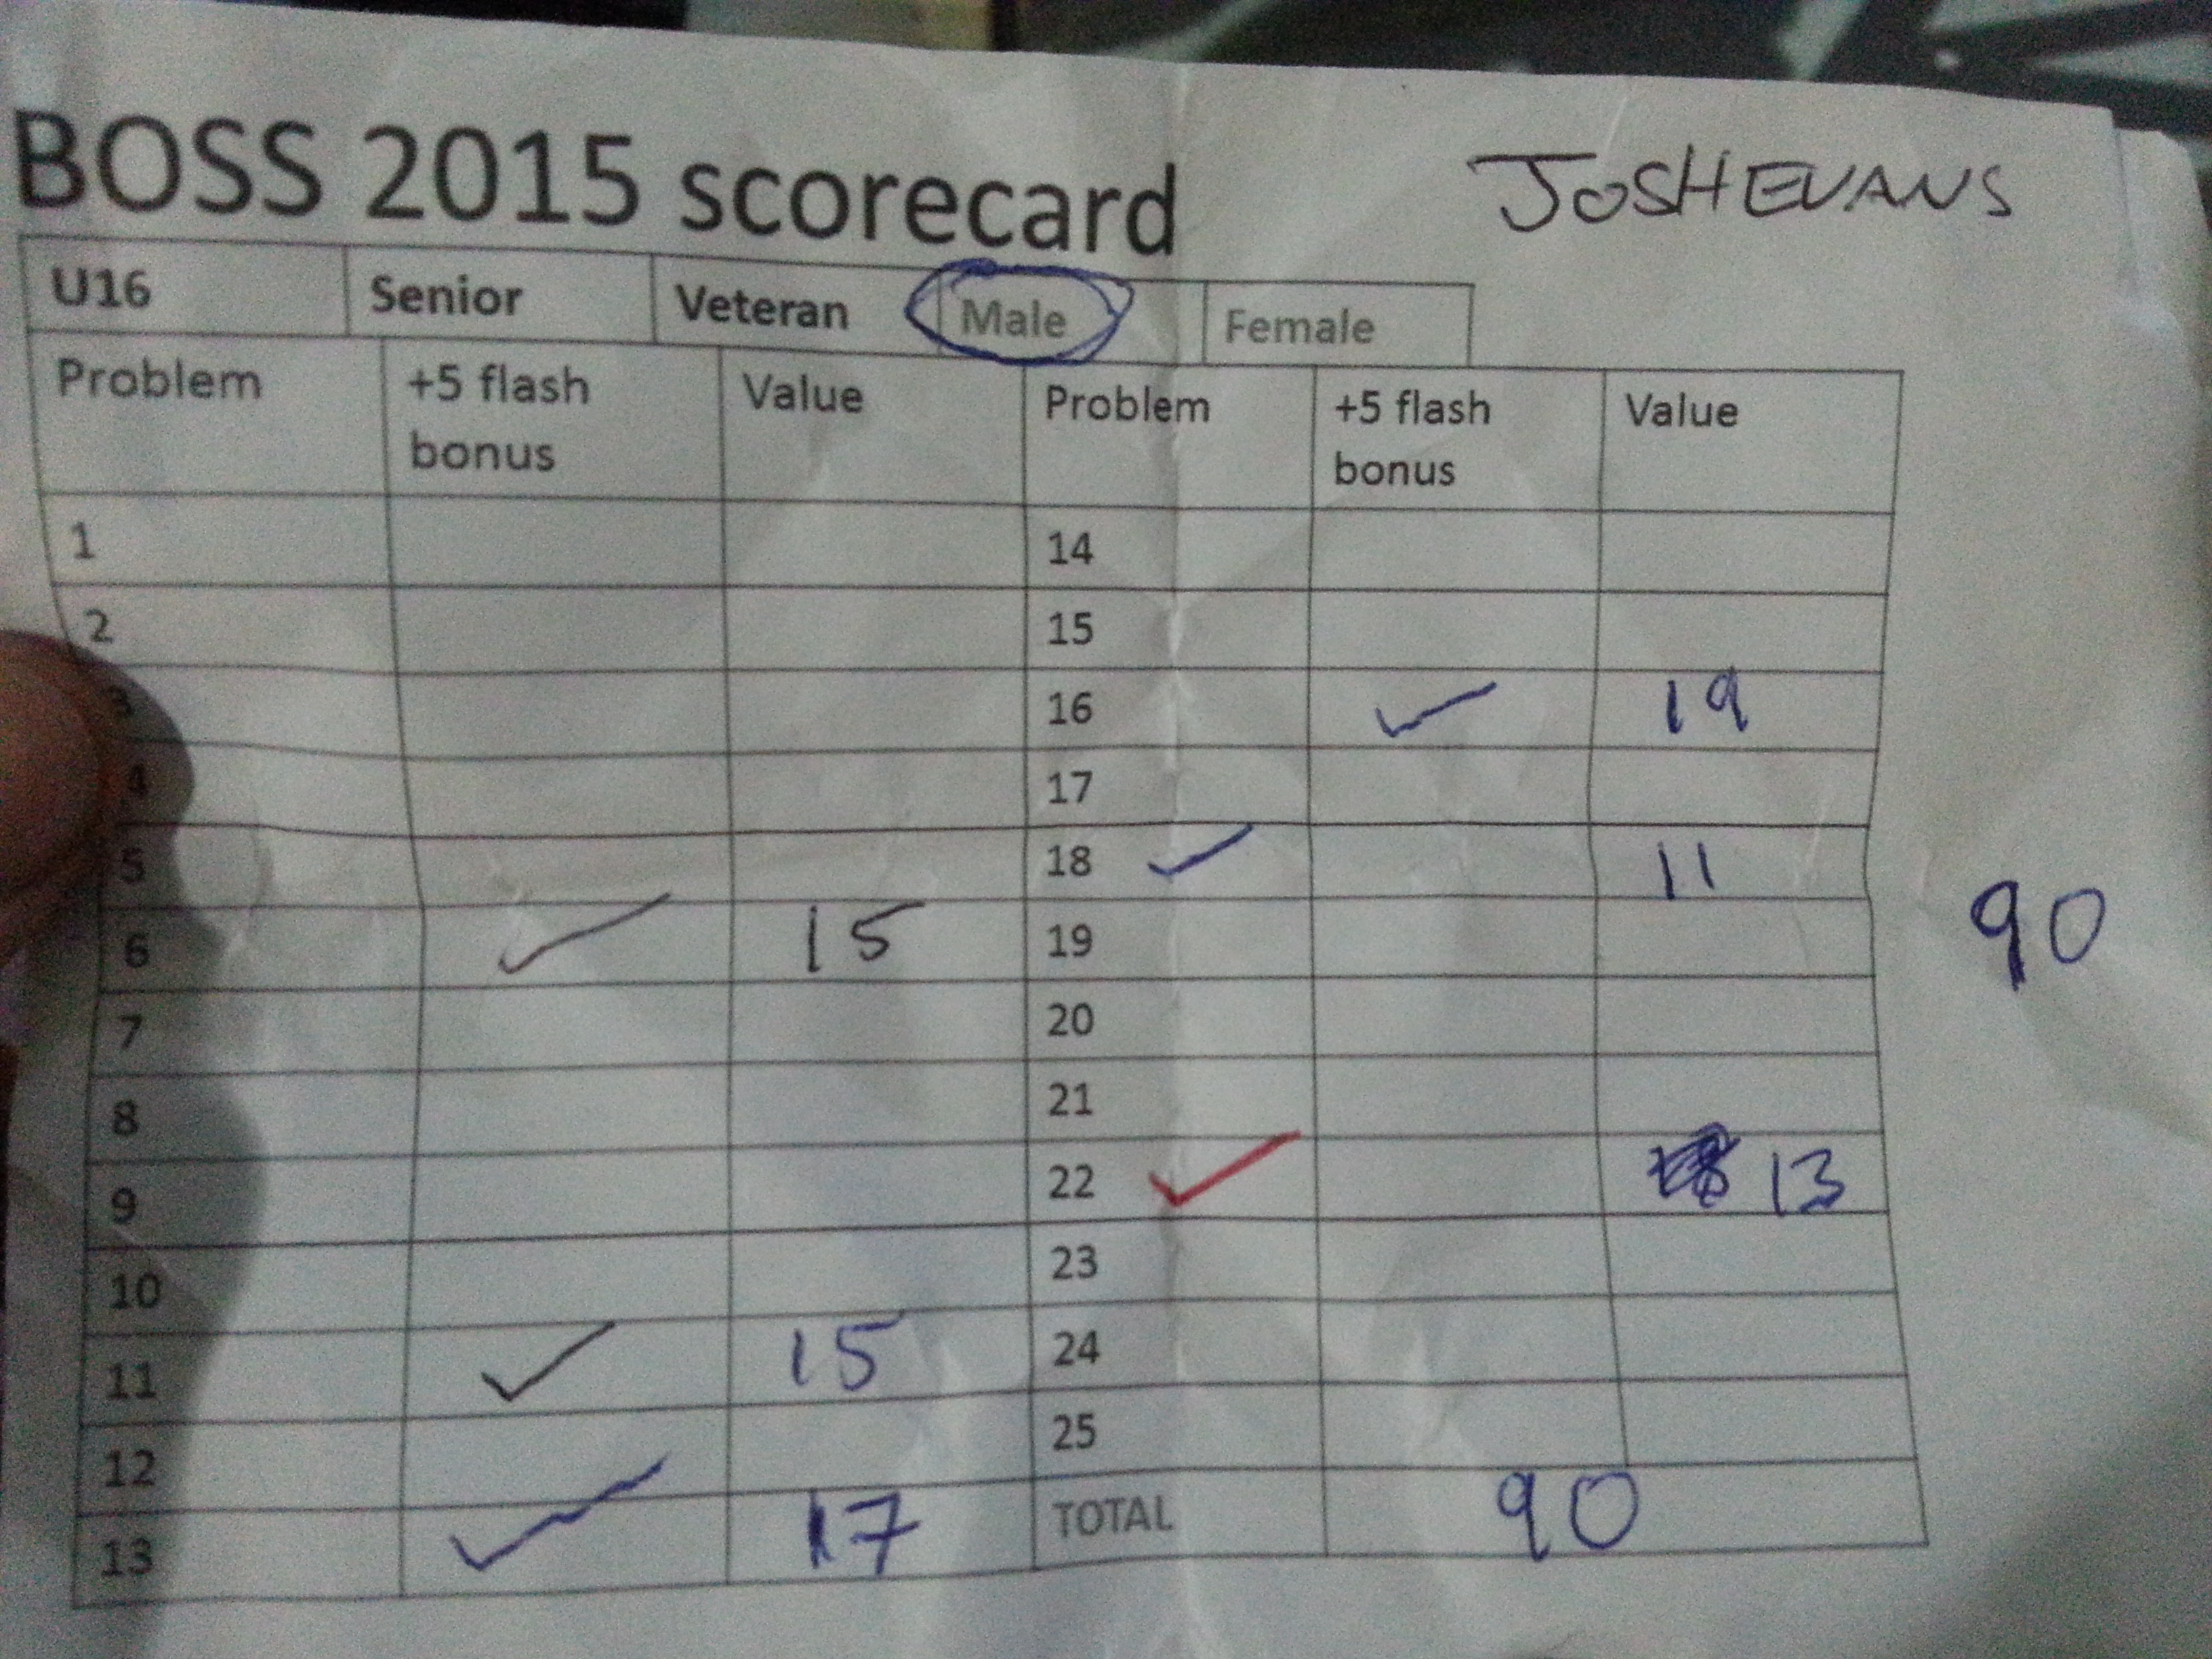 BOSS 2015 scorecard JOSH EVANS
U16 Senior Veteran Male Female
Problem +5 flash bonus Value Problem +5 flash bonus Value
1 14
2 15
3 16 ✓ 19
4 17
5 18 ✓ 11
6 ✓ 15 19
90
7 20
8 21
9 22 ✓ 13
10 23
11 ✓ 15 24
12 25
13 ✓ 17 TOTAL 90